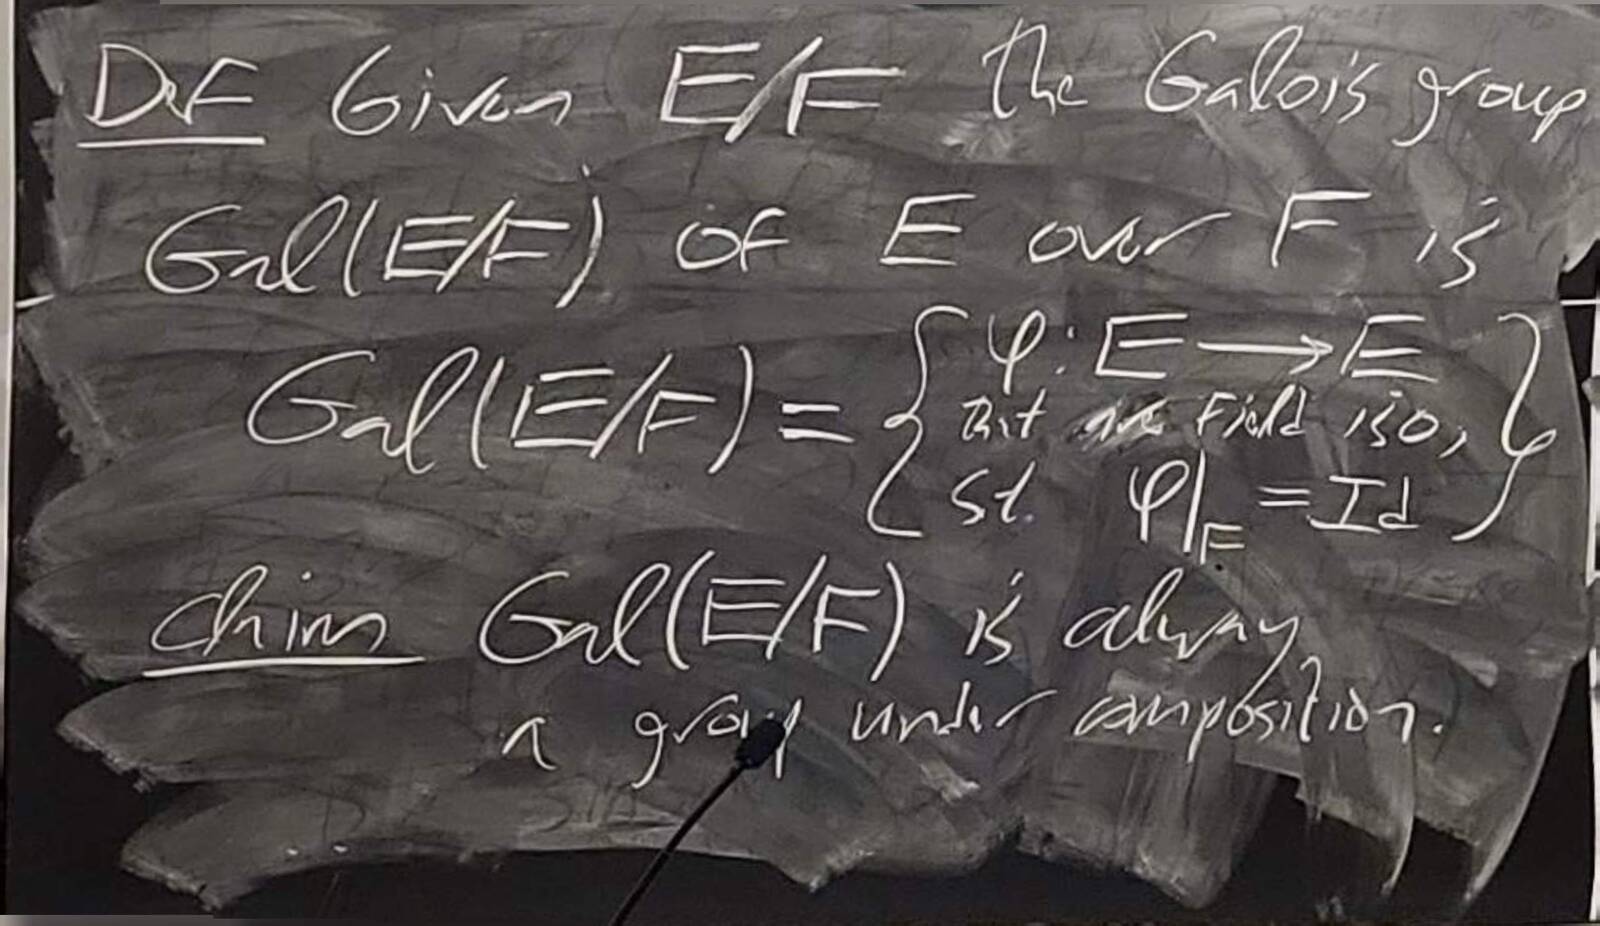 Def Given E/F the Galois group
Gal(E/F) of E over F is
Gal(E/F) = { φ: E → E
that are field iso,
st. φ|_F = Id }
Claim Gal(E/F) is always
a group under composition.